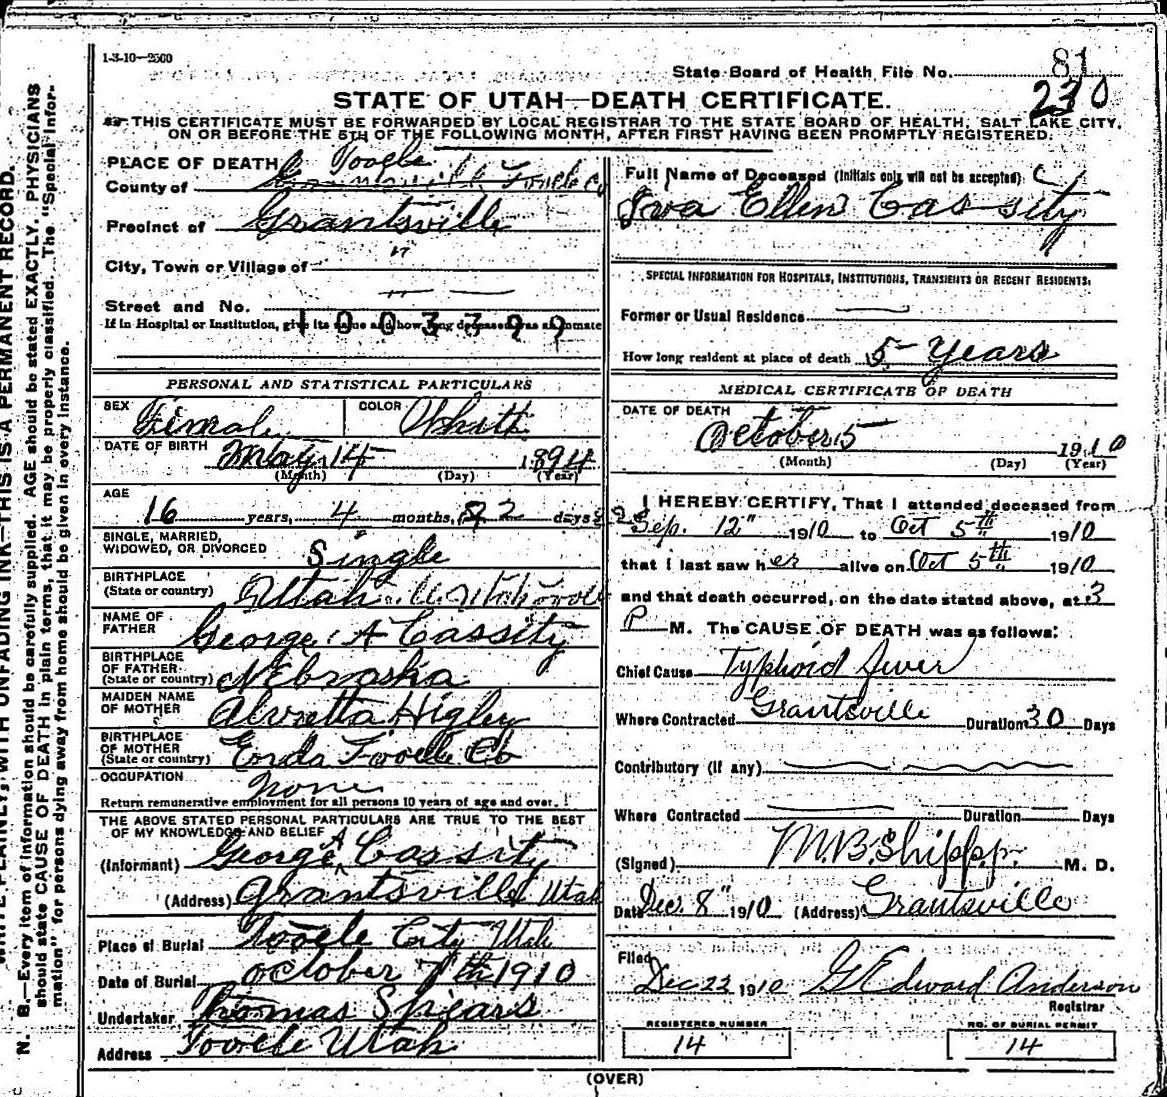 1-3-10—2500
State Board of Health File No. 81
230
STATE OF UTAH—DEATH CERTIFICATE.
THIS CERTIFICATE MUST BE FORWARDED BY LOCAL REGISTRAR TO THE STATE BOARD OF HEALTH, SALT LAKE CITY,
ON OR BEFORE THE 5TH OF THE FOLLOWING MONTH, AFTER FIRST HAVING BEEN PROMPTLY REGISTERED.
PLACE OF DEATH
County of Tooele Grantsville Tooele Co
Precinct of Grantsville
City, Town or Village of "
Street and No.
If in Hospital or Institution, give its name and how long deceased was an inmate
1003399
PERSONAL AND STATISTICAL PARTICULARS
SEX Fimale COLOR White
DATE OF BIRTH May 14 1894
(Month) (Day) (Year)
AGE
16 years, 4 months, 22 days
SINGLE, MARRIED,
WIDOWED, OR DIVORCED Single
BIRTHPLACE
(State or country) Utah
NAME OF
FATHER George A Cassity
BIRTHPLACE
OF FATHER
(State or country) Nebraska
MAIDEN NAME
OF MOTHER Alvretta Higley
BIRTHPLACE
OF MOTHER
(State or country) Erda Tooele Co
OCCUPATION none
Return remunerative employment for all persons 10 years of age and over.
THE ABOVE STATED PERSONAL PARTICULARS ARE TRUE TO THE BEST
OF MY KNOWLEDGE AND BELIEF
(Informant) George A Cassity
(Address) Grantsville Utah
Place of Burial Tooele City Utah
Date of Burial October 7th 1910
Undertaker Thomas Spears
Address Tooele Utah
Full Name of Deceased (Initials only will not be accepted)
Iva Ellen Cassity
SPECIAL INFORMATION FOR HOSPITALS, INSTITUTIONS, TRANSIENTS OR RECENT RESIDENTS:
Former or Usual Residence
How long resident at place of death 5 Years
MEDICAL CERTIFICATE OF DEATH
DATE OF DEATH
October 5 1910
(Month) (Day) (Year)
I HEREBY CERTIFY, That I attended deceased from
Sep. 12" 1910 to Oct 5th 1910
that I last saw her alive on Oct 5th 1910
and that death occurred, on the date stated above, at 3
P M. The CAUSE OF DEATH was as follows:
Chief Cause Typhoid Fever
Where Contracted Grantsville Duration 30 Days
Contributory (if any)
Where Contracted Duration Days
(Signed) M.B. Shipp M. D.
Date Dec. 8" 1910 (Address) Grantsville
Filed
Dec 23 1910 G Edward Anderson
Registrar
REGISTERED NUMBER
14
NO. OF BURIAL PERMIT
14
(OVER)
WITH UNFADING INK—THIS IS A PERMANENT RECORD.
N. B.—Every item of information should be carefully supplied. AGE should be stated EXACTLY. PHYSICIANS
should state CAUSE OF DEATH in plain terms, that it may be properly classified. The "Special Infor-
mation" for persons dying away from home should be given in every instance.